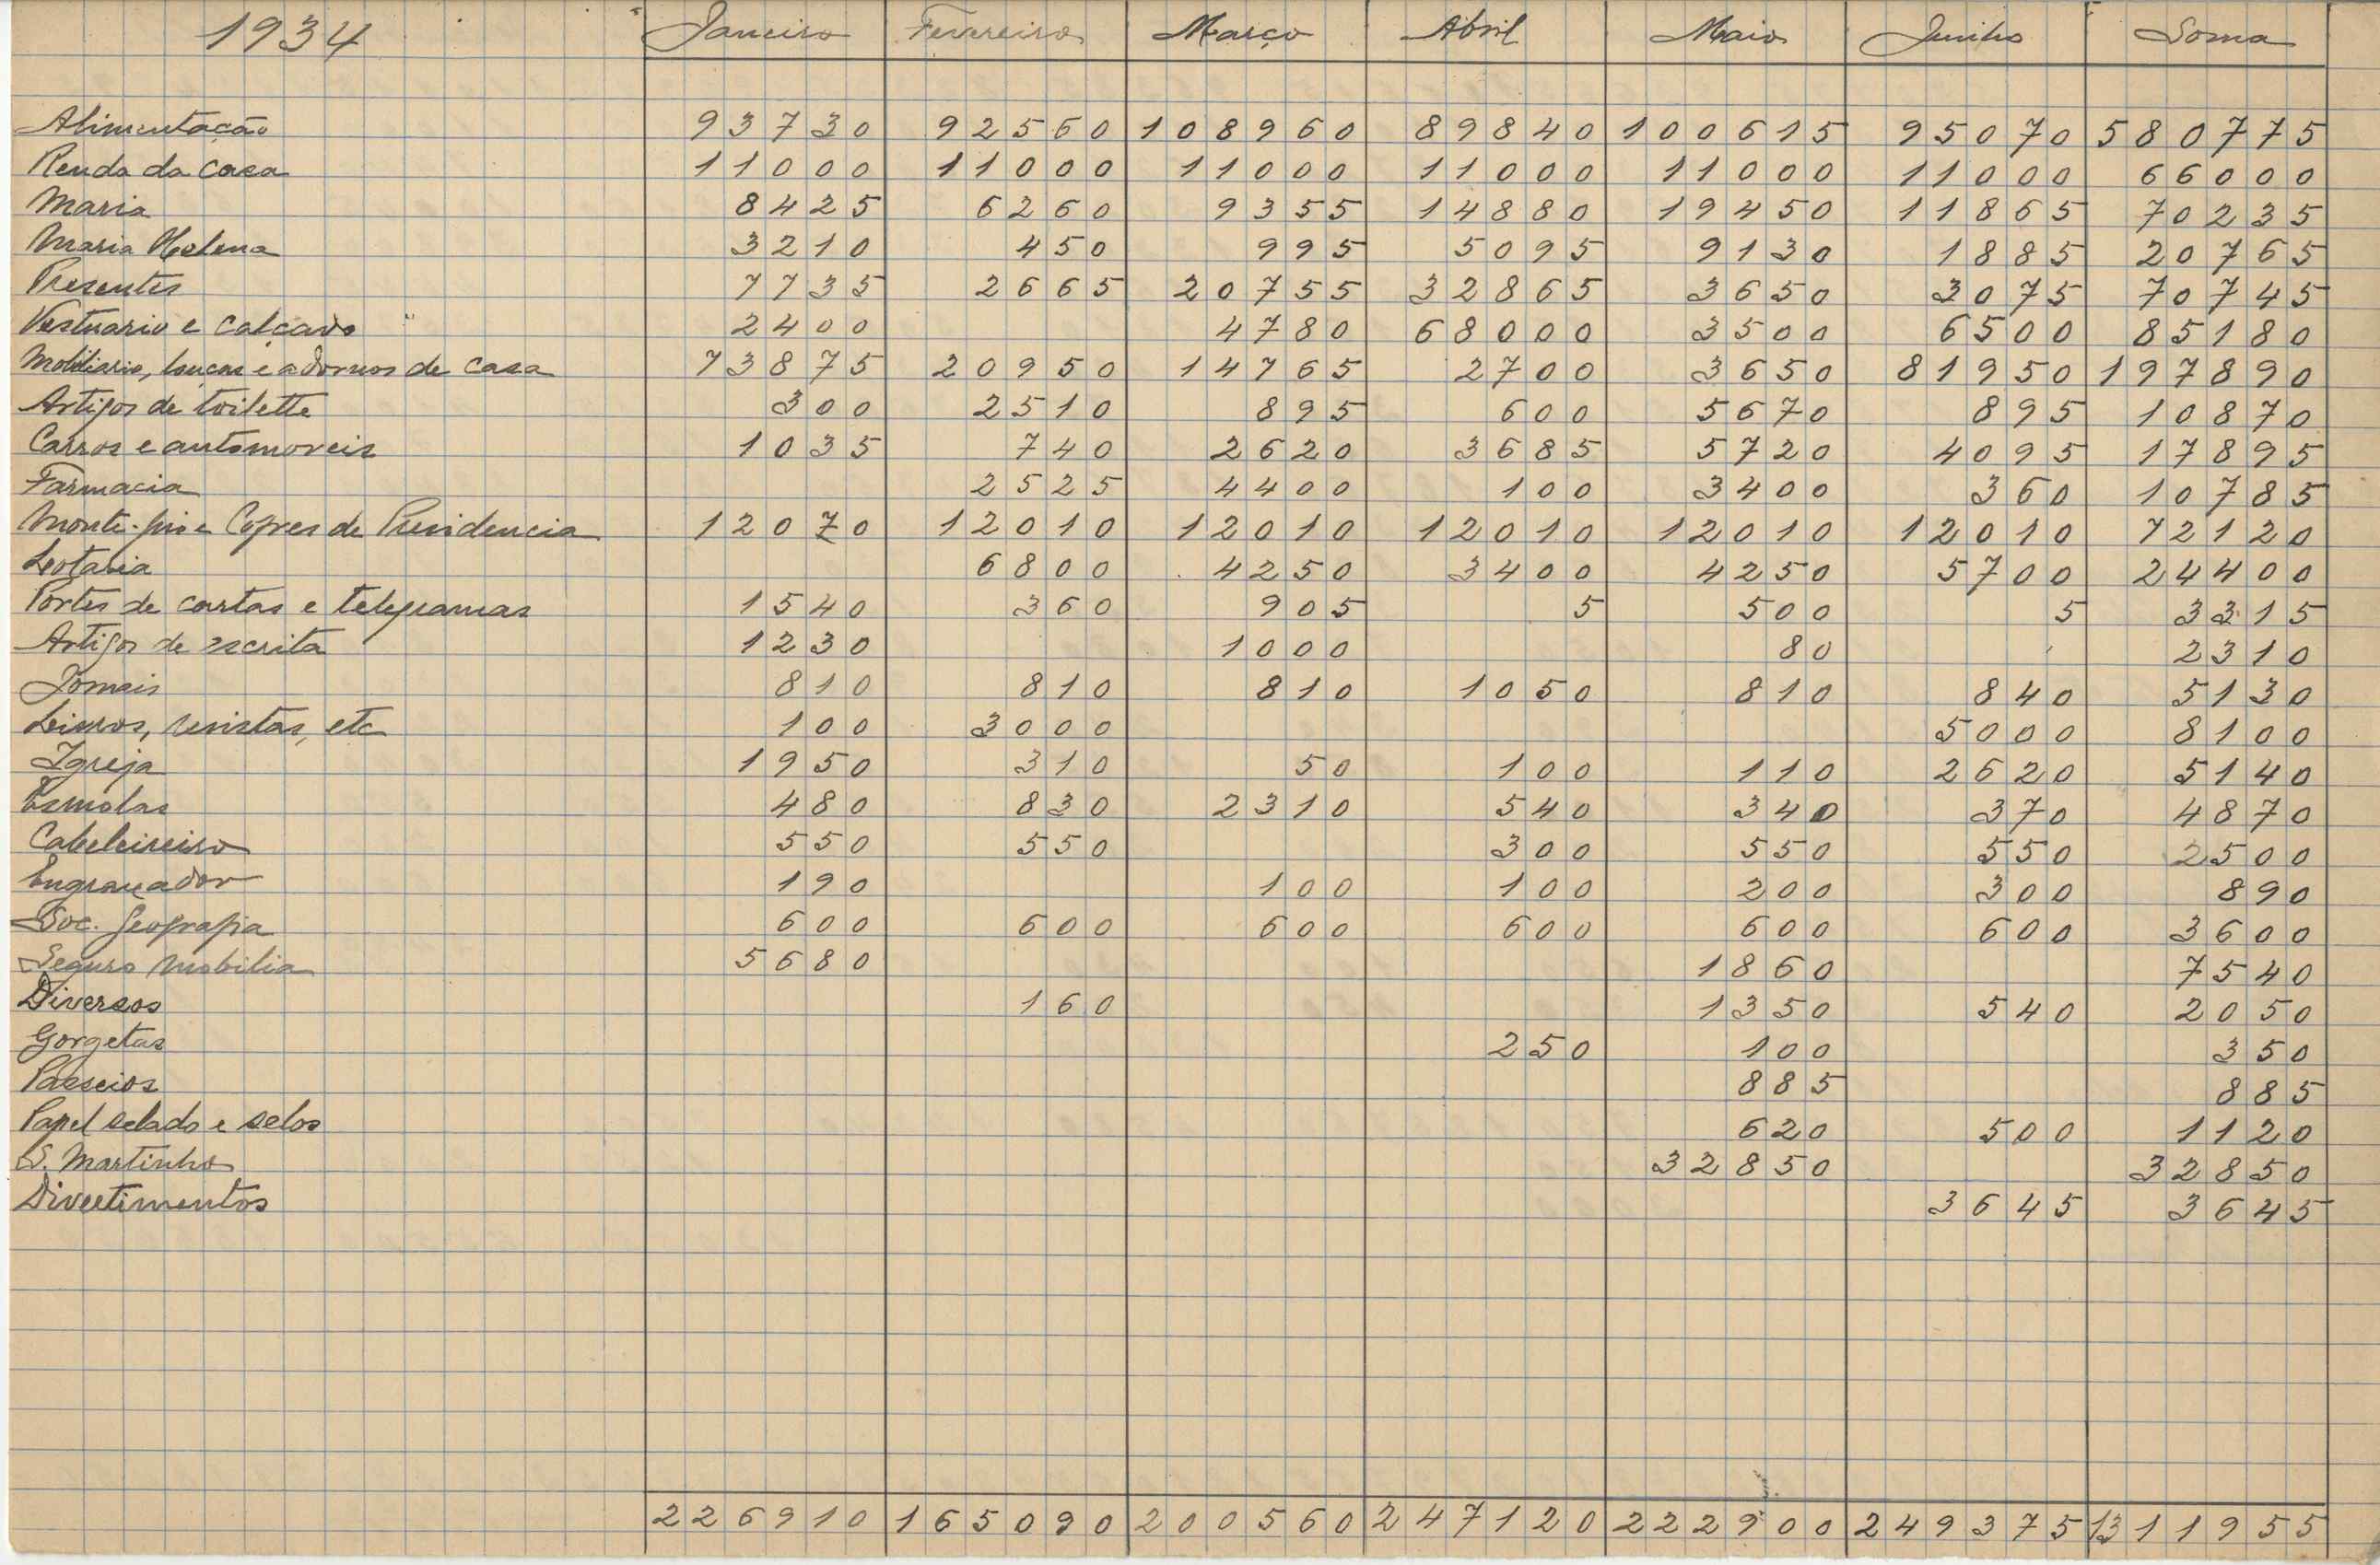 1934 Janeiro Fevereiro Março Abril Maio Junho Soma
Alimentação 93730 92560 108960 89840 100615 95070 580775
Renda da casa 11000 11000 11000 11000 11000 11000 66000
Maria 8425 6260 9355 14880 19450 11865 70235
Maria Helena 3210 450 995 5095 9130 1885 20765
Presentes 7735 2665 20755 32865 3650 3075 70745
Vestuario e calçavo 2400 4780 68000 3500 6500 85180
Mobiliario, louças e adornos de casa 73875 20950 14765 2700 3650 81950 197890
Artigos de toilette 300 2510 895 600 5670 895 10870
Carros e automoveis 1035 740 2620 3685 5720 4095 17895
Farmacia 2525 4400 100 3400 360 10785
Monte-pio e Cofres de Previdencia 12070 12010 12010 12010 12010 12010 72120
Lotaria 6800 4250 3400 4250 5700 24400
Portes de cartas e telegramas 1540 360 905 5 500 5 3315
Artigos de escrita 1230 1000 80 2310
Jornais 810 810 810 1050 810 840 5130
Livros, revistas, etc 100 3000 5000 8100
Igreja 1950 310 50 100 110 2620 5140
Esmolas 480 830 2310 540 340 370 4870
Cabeleireiro 550 550 300 550 550 2500
Engraxador 190 100 100 200 300 890
Soc. Geografia 600 600 600 600 600 600 3600
Seguro mobilia 5680 1860 7540
Diversos 160 1350 540 2050
Gorgetas 250 100 350
Passeios 885 885
Papel selado e selos 620 500 1120
S. Martinho 32850 32850
Divertimentos 3645 3645
226910 165090 200560 247120 222900 249375 1311955